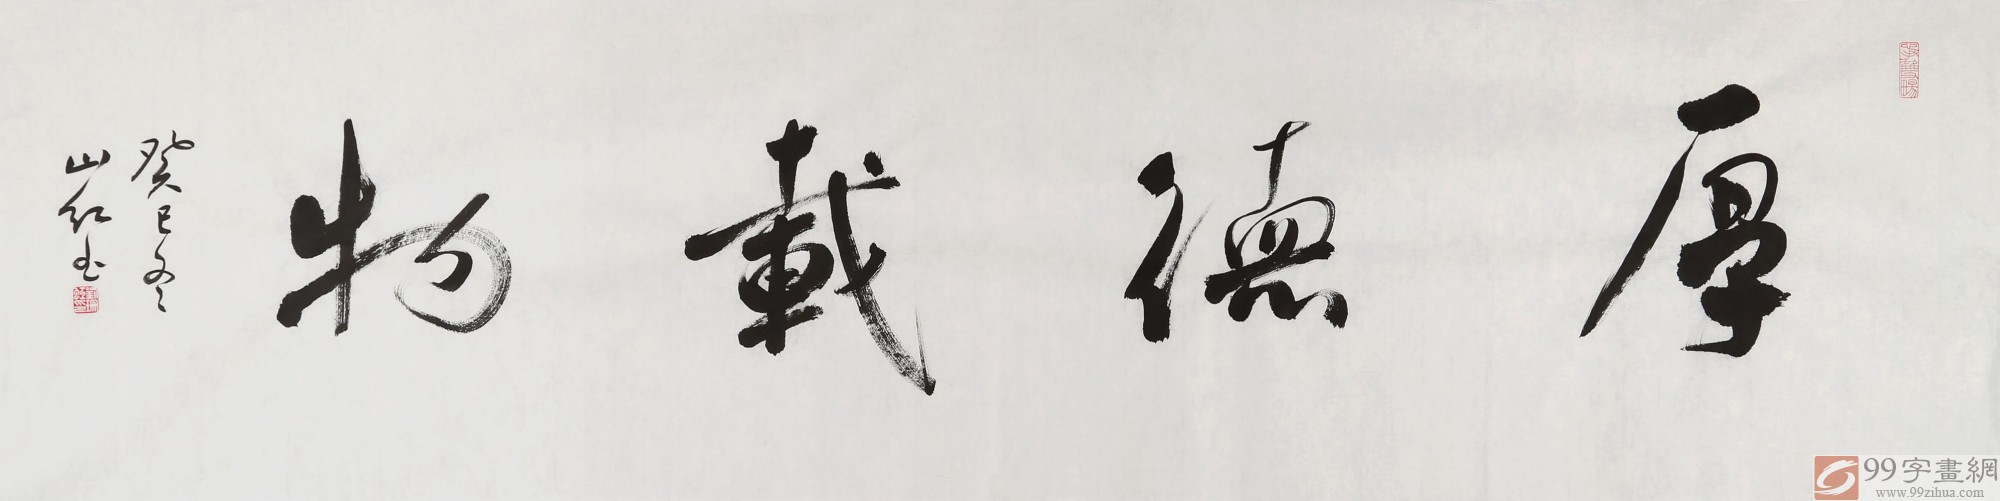 厚德載物
癸巳冬
山红书
99字畫網
www.99zihua.com